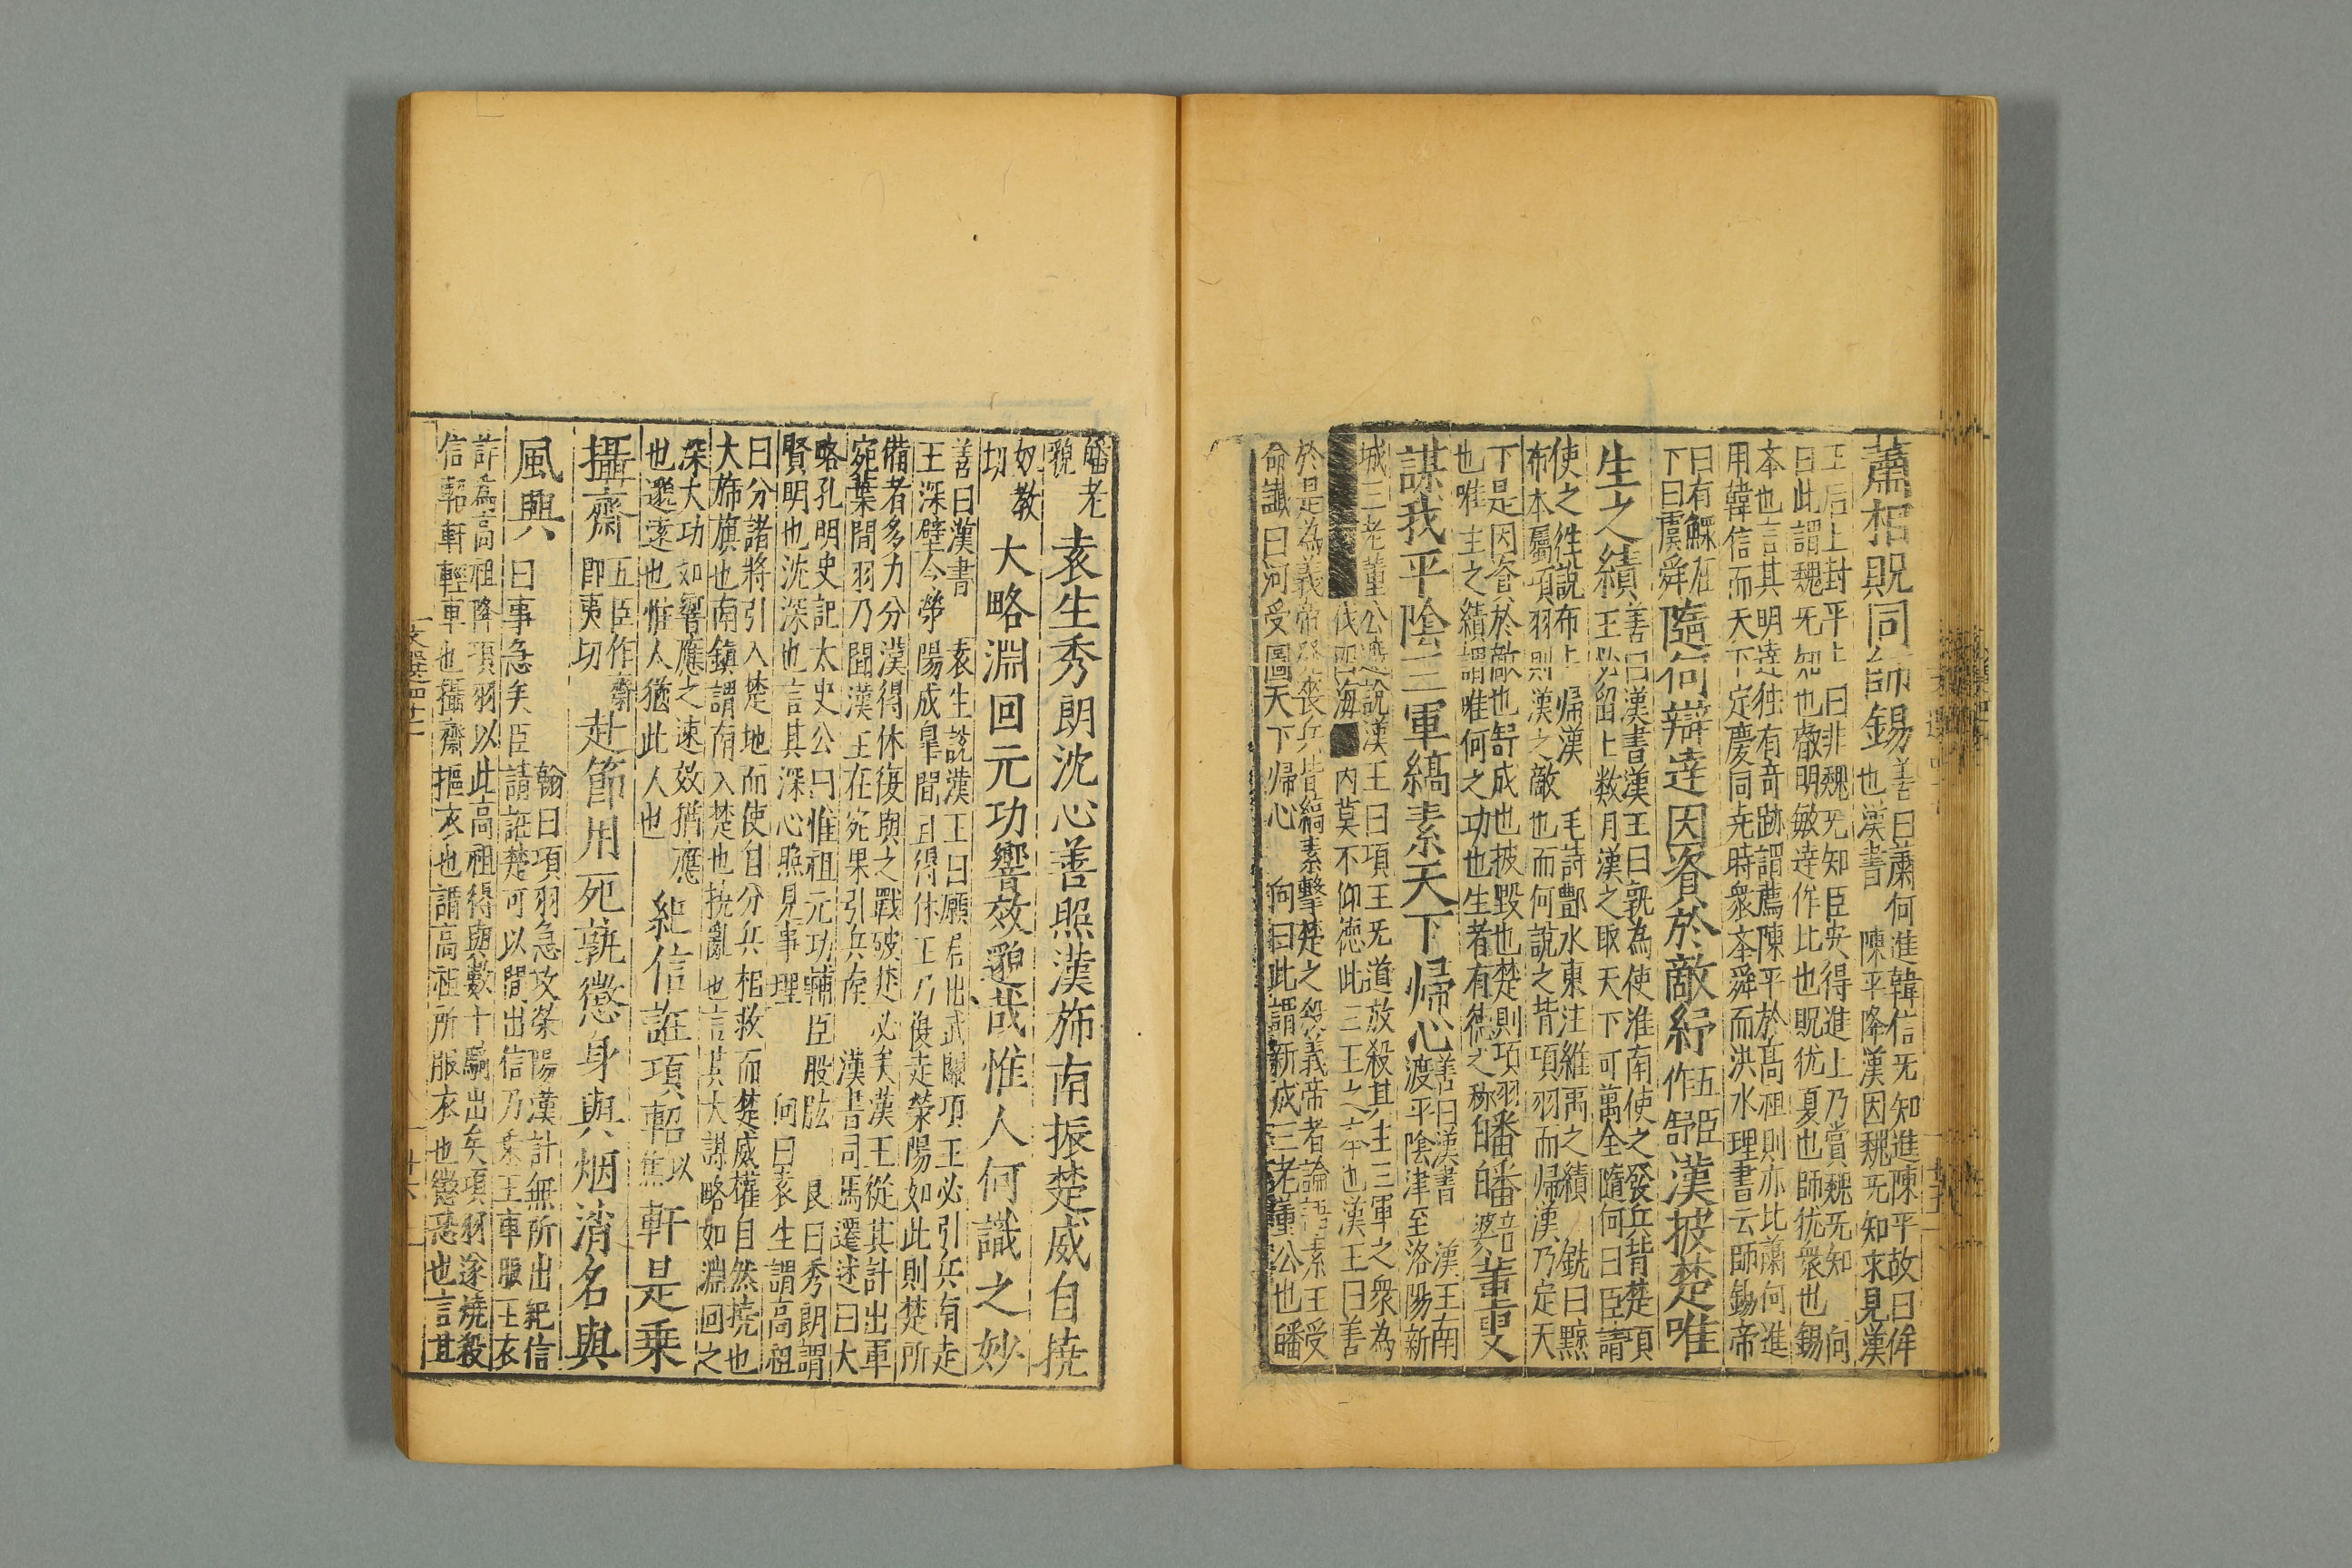 蕭相貺同師錫
善曰蕭何進韓信无知進陳平故曰侔
也漢書 陳平降漢因魏无知求見漢
王后上封平上 曰非魏无知臣安得進上乃賞魏无知 向
曰此謂魏无知也敵明敏達作比也貺犹夏也師犹衆也錫
本也言其明達独有竒跡謂薦陳平於高祖則亦比蕭何進
用韓信而天下定慶同尭時衆本舜而洪水理書云師錫帝
曰有鰥在
下曰虞舜
隨何辯達因資於敵紓
五臣
作舒
漢披楚唯
生之績
善曰漢書漢王曰孰為使淮南使之發兵背楚項
王必留上数月漢之取天下可萬全隨何曰臣請
使之 徃說布上 歸漢 毛詩酆水東注維禹之績 銑曰黥
布本屬項羽則漢之敵也而何說之背項羽而帰漢乃定天
下是因資於敵也舒成也披毀也楚則項羽
也唯主之績謂唯何之功也生者有徳之称
皤皤
音
婆
董叟
謀我平隂三軍縞素天下歸心
善曰漢書 漢王南
渡平隂津至洛陽新
城三老董公遮說漢王曰項王无道放殺其主三軍之衆為
伐四海 内莫不仰徳此三王之本也漢王曰善
於是為義帝發丧兵皆縞素擊楚之殺義帝者論語素王受
命讖曰河受圖天下歸心 向曰此謂新成三老董公也皤
皤老
貌
袁生秀朗沈心善照漢斾南振楚威自撓
奴教
切
大略淵回元功響效邈哉惟人何識之妙
善曰漢書 袁生說漢王曰願君出武關項王必引兵南走
王深壁令滎陽成皐間且得休王乃復走滎陽如此則楚所
備者多力分漢得休復與之戰破楚必矣漢王從其計出軍
宛葉間羽乃聞漢王在宛果引兵南 漢書司馬遷述曰大
略孔明史記太史公曰惟祖元功輔臣股肱 良曰秀朗謂
賢明也沈深也言其深心照見事理 向曰袁生謂高祖
曰分諸將引入楚地而使自分兵相救而楚威權自然撓也
大斾旗也南鎮謂南入楚也撓亂也言其大謀略如淵回之
深大功如響應之速效猶應
也邈遠也惟人猶此人也
紀信誑項軺
以
焦
軒是乗
攝齋
五臣作齋
即夷切
赴節用死孰懲身與烟消名與
風興
翰曰項羽急攻滎陽漢計無所出紀信
曰事急矣臣請誑楚可以間出信乃乗王車服王衣
詐為高祖降項羽以此高祖得與數十騎出矣項羽遂燒殺
信軺軒輕車也攝齋摳衣也謂高祖所服衣也懲恐也言其
文選四十